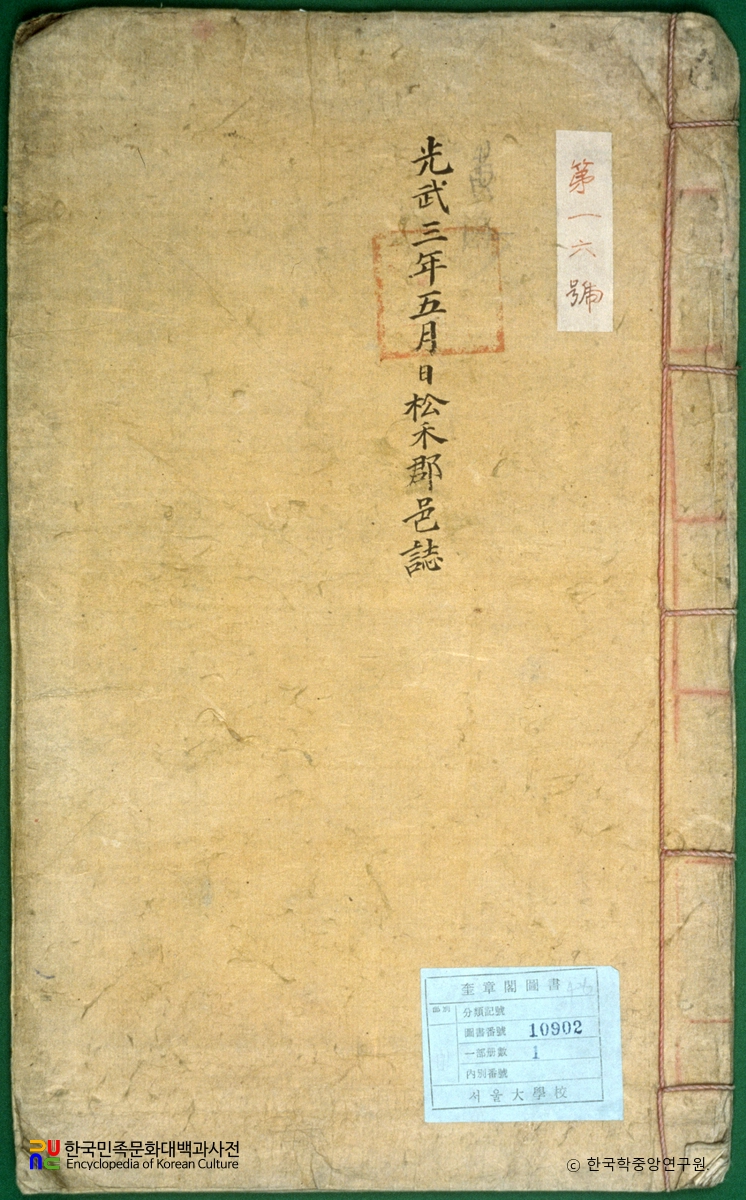 第一六號
光武三年五月日松禾郡邑誌
奎章閣圖書
分類記號
圖書番號 10902
一部册數 1
內別番號
서울大學校
한국민족문화대백과사전
Encyclopedia of Korean Culture
© 한국학중앙연구원